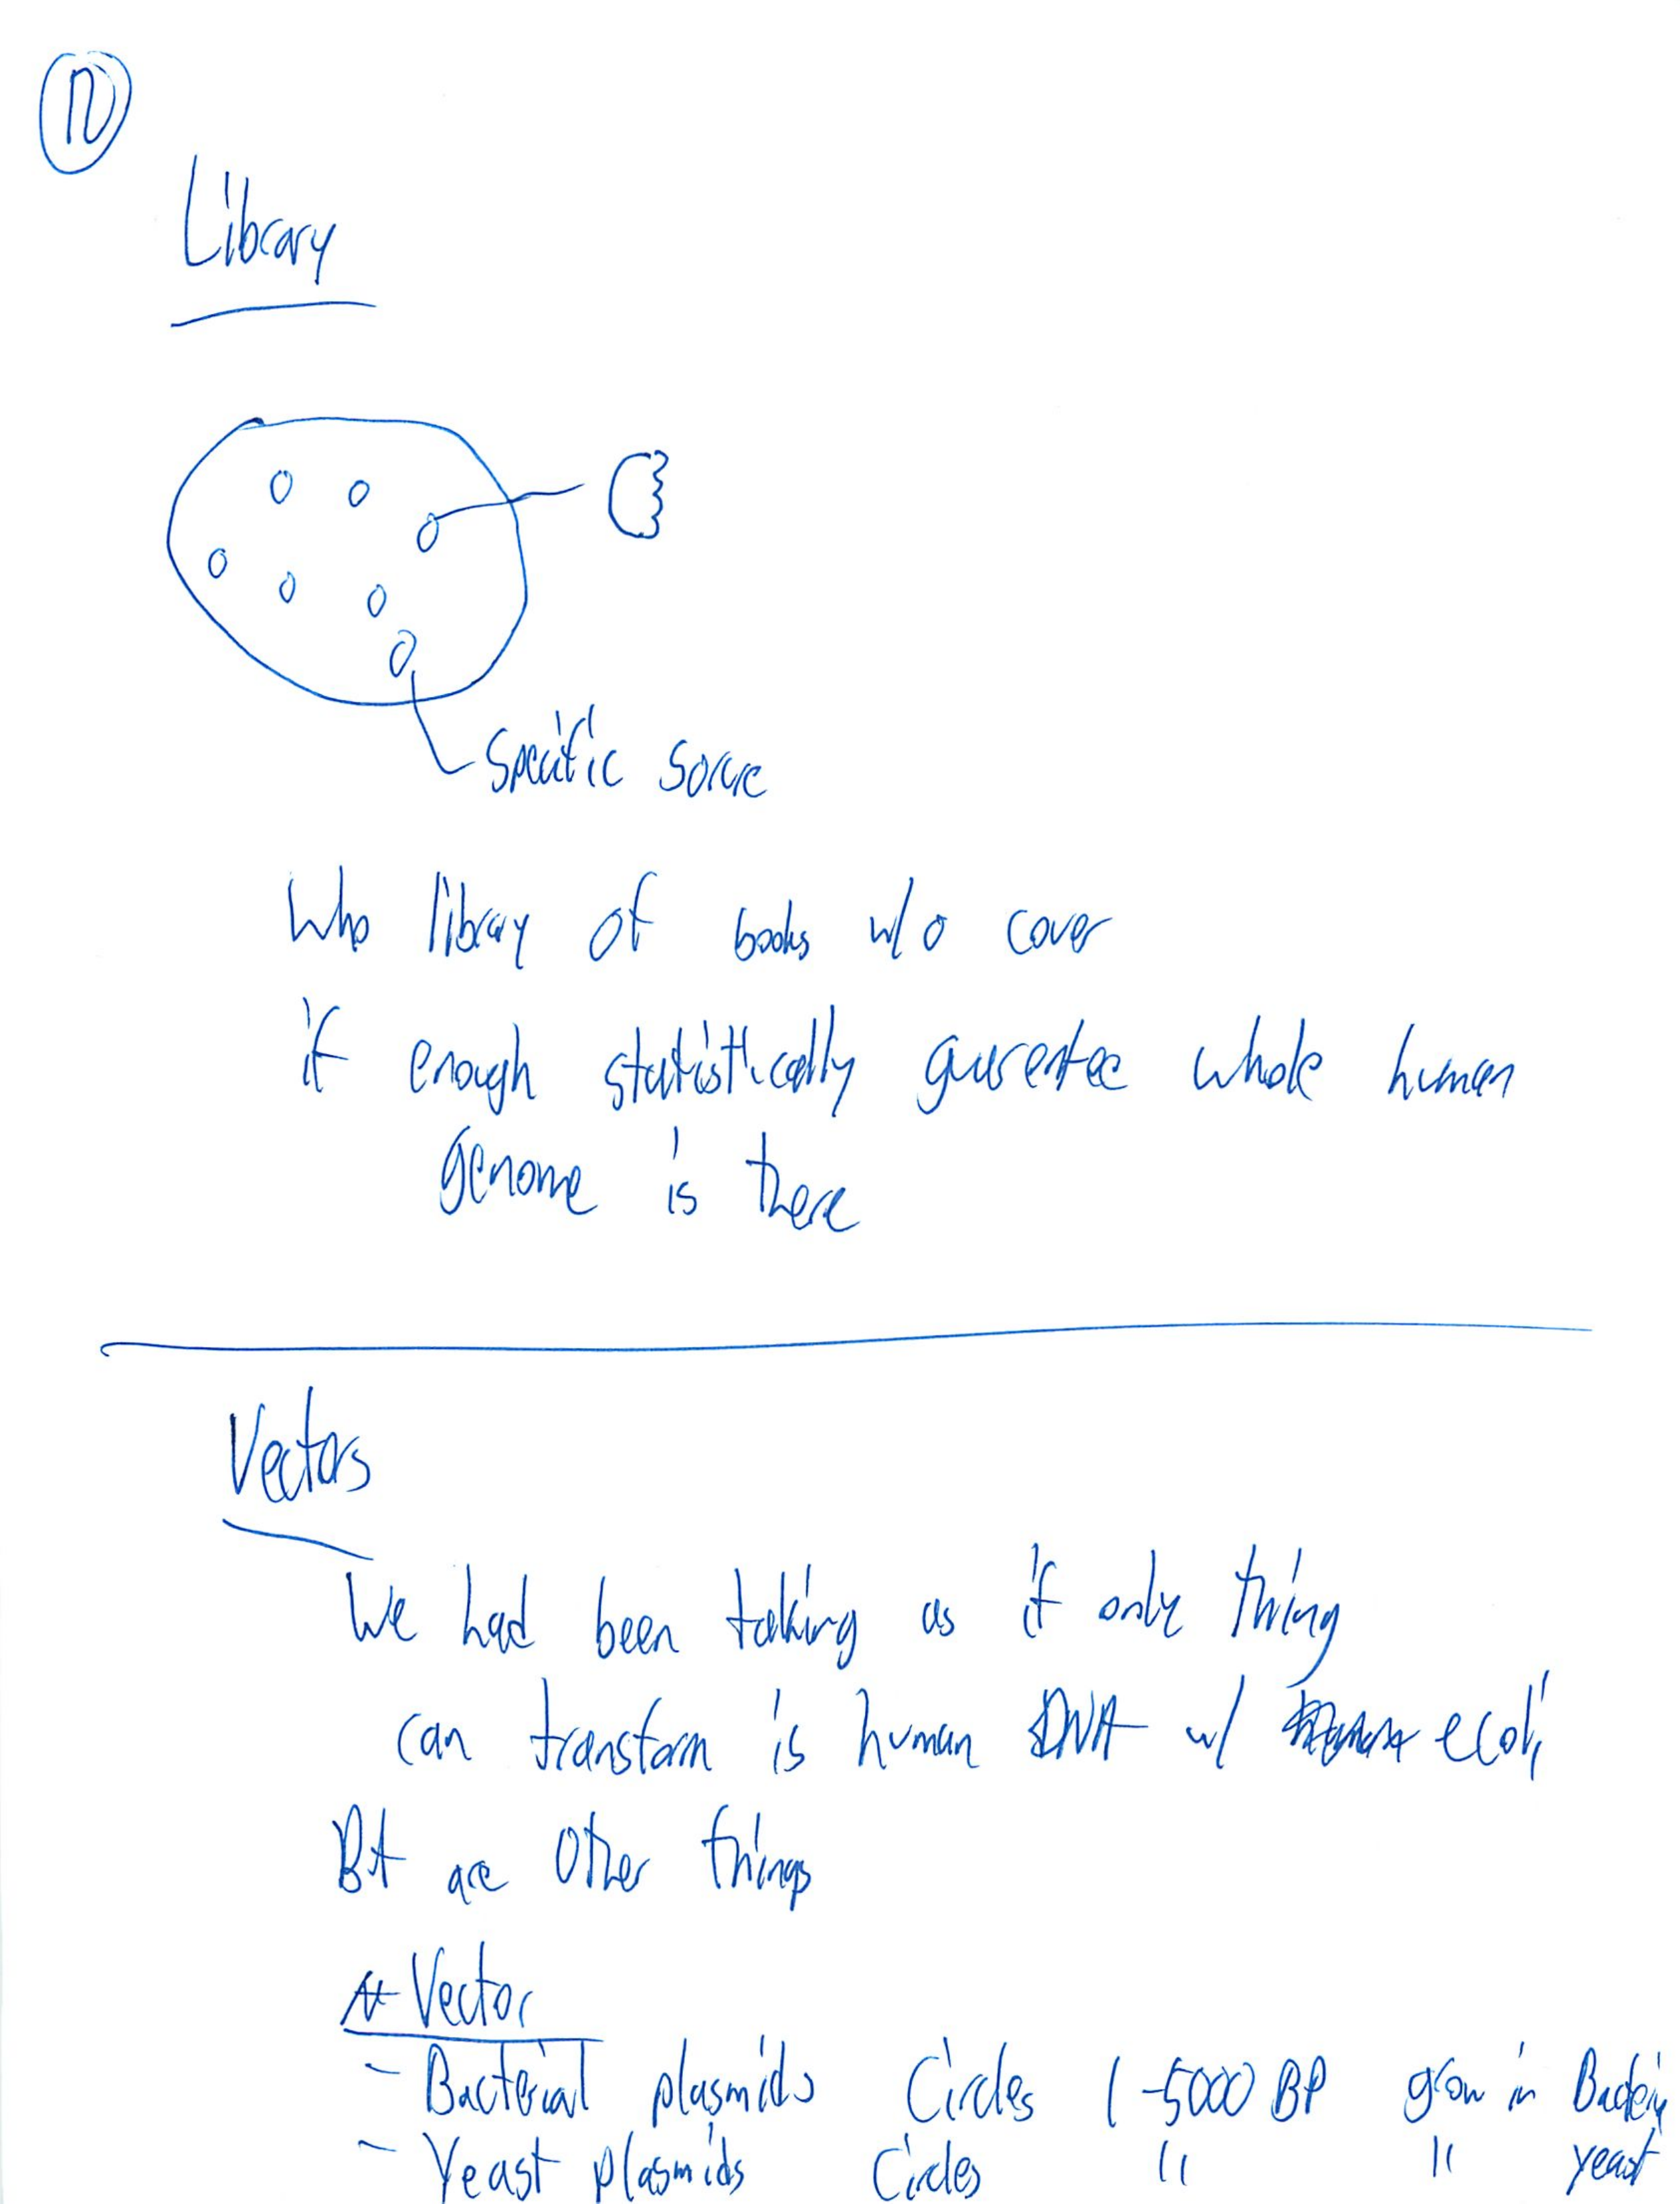 Library
Specific
Who library of books w/o cover
if enough statistically gurentee whole human
genome is there
Vectors
We had been talking as if only thing
can transform is human DNA w/ ecoli
But are other things
Vector
- Bacterial plasmids Circles 1-5000 BP grow in Bacteria
- Yeast plasmids Circles " " yeast